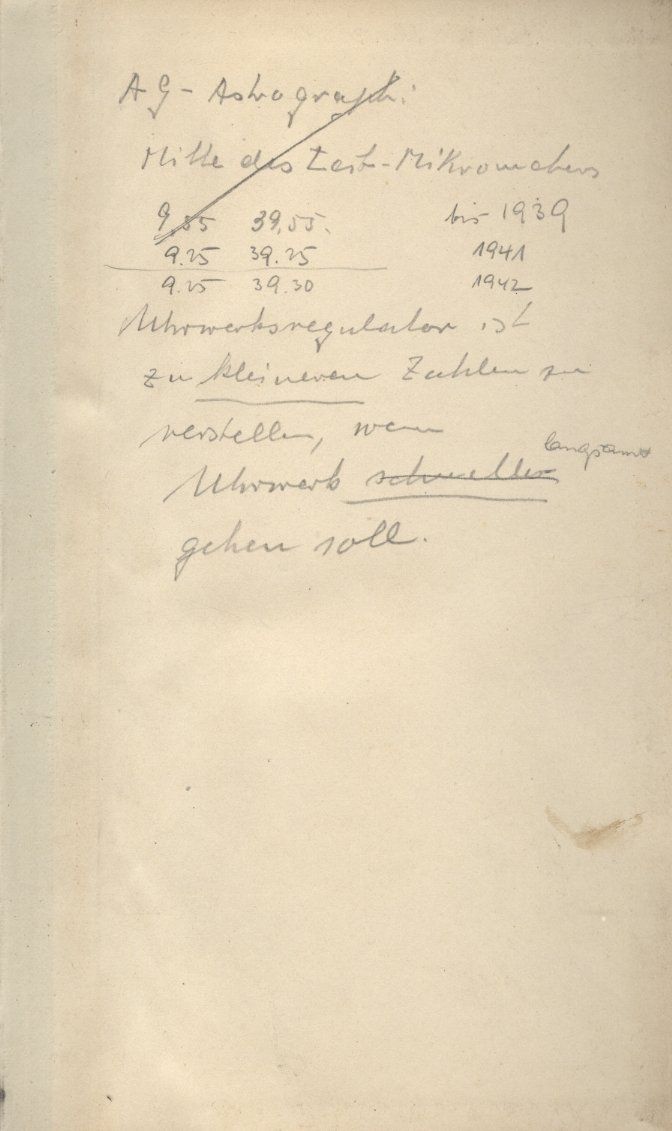 AG-Astrograph:
Mitte des Zeit-Mikrometers
9,55 39,55. bis 1939
9.25 39.25 1941
9.25 39.30 1942
Uhrwerksregulator ist
zu kleineren Zahlen zu
verstellen, wenn
langsamer
Uhrwerk schneller
gehen soll.